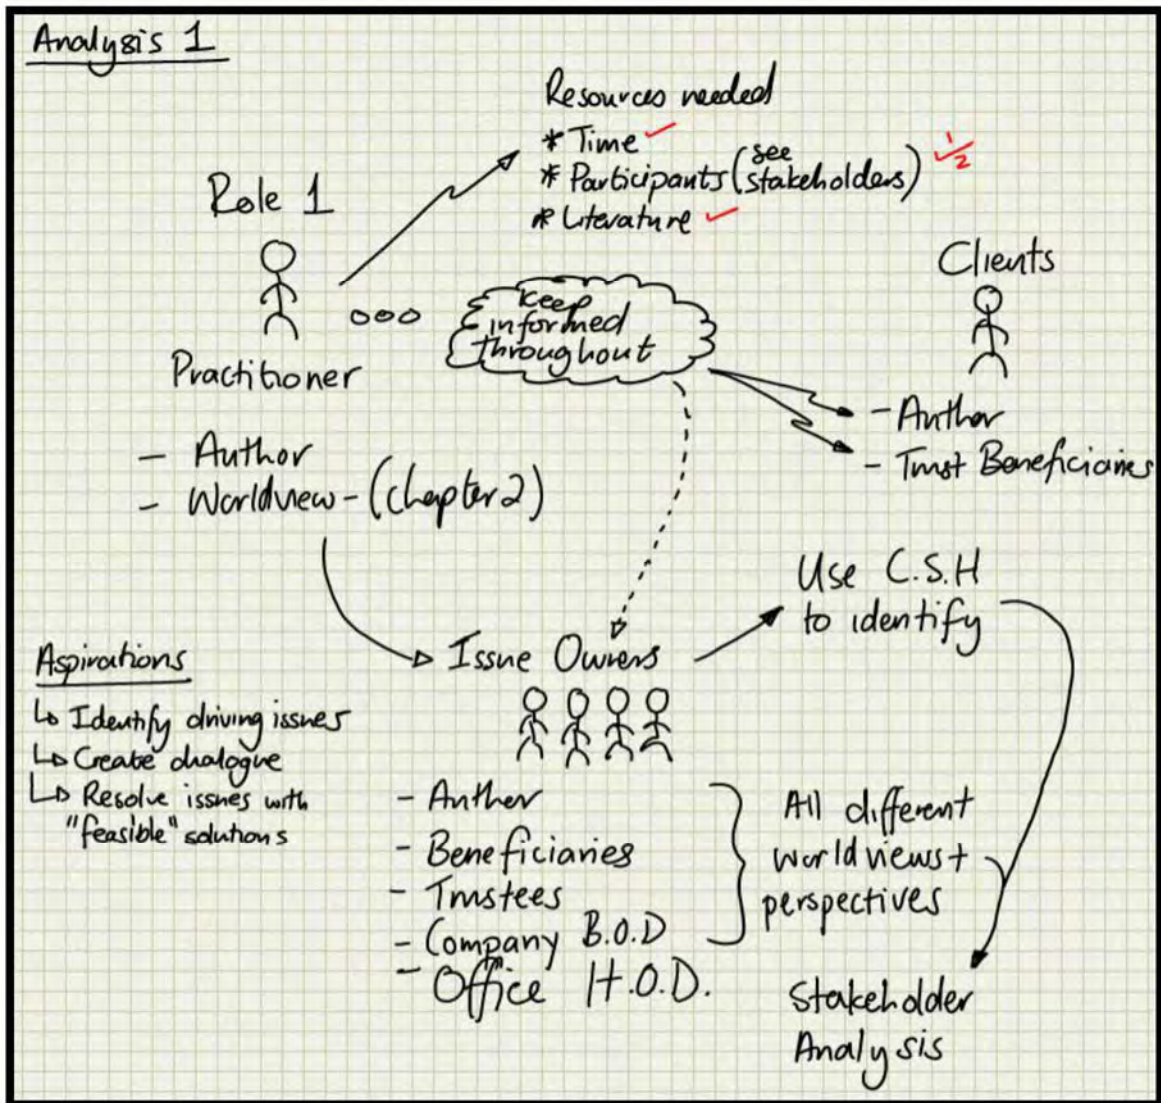 Analysis 1
Resources needed
* Time ✓
* Participants (see
stakeholders) ½
* Literature ✓
Role 1
Practitioner
- Author
- Worldview - (Chapter 2)
Keep
informed
throughout
Clients
- Author
- Trust Beneficiaries
Use C.S.H
to identify
Issue Owners
Aspirations
↳ Identify driving issues
↳ Create dialogue
↳ Resolve issues with
"feasible" solutions
- Author
- Beneficiaries
- Trustees
- Company B.O.D
- Office H.O.D.
All different
worldviews +
perspectives
Stakeholder
Analysis